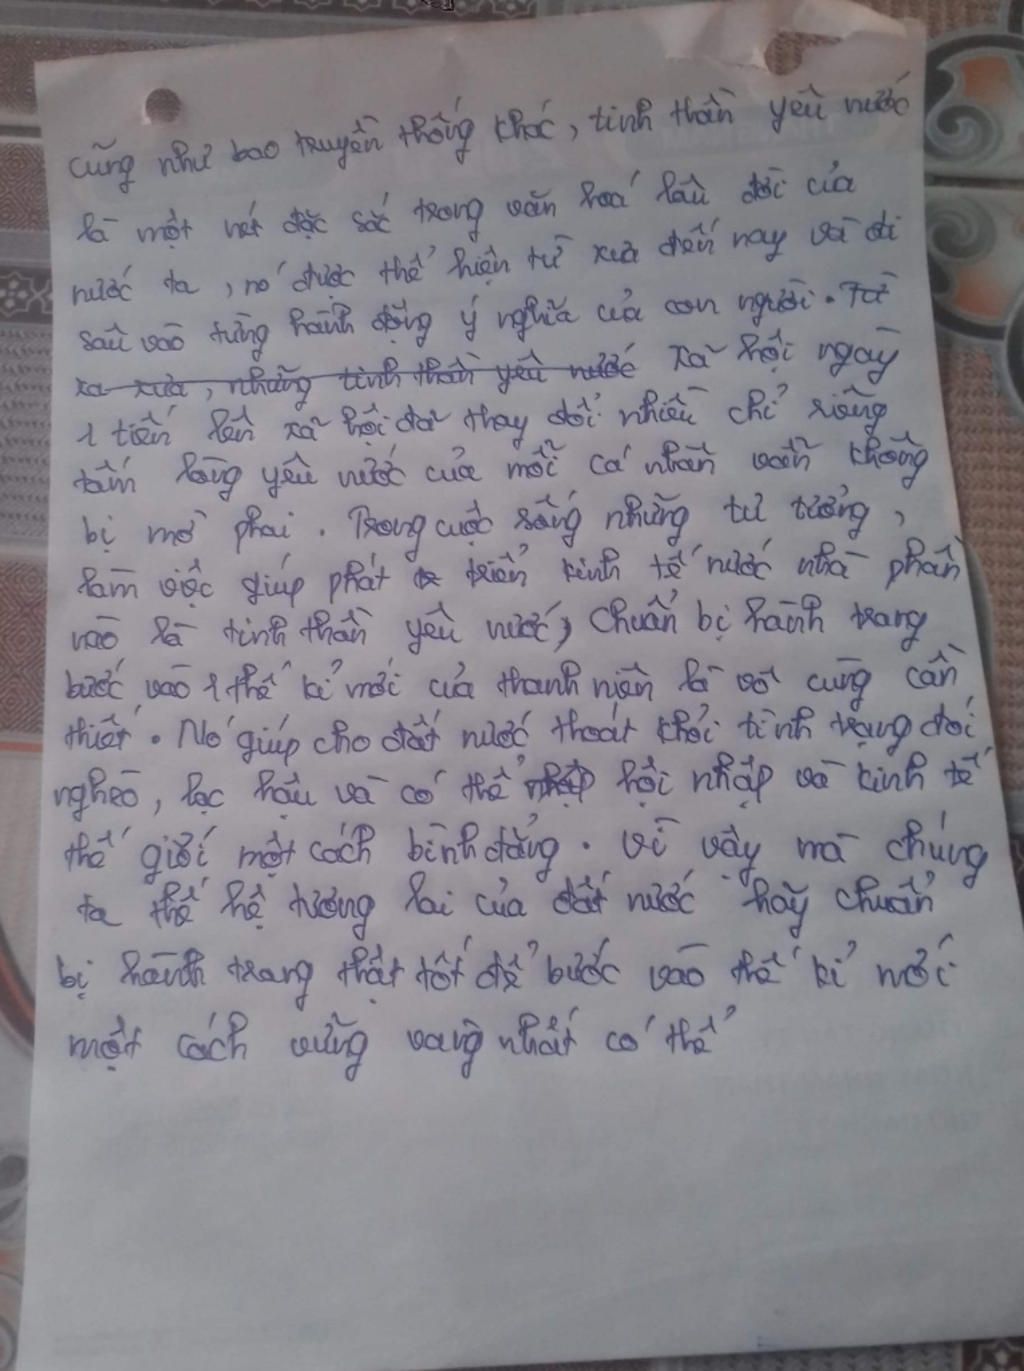 cũng như bao truyền thống khác, tinh thần yêu nước
là một nét đặc sắc trong văn hoá lâu đời của
nước ta, nó được thể hiện từ xưa đến nay và đi
sâu vào từng hành động ý nghĩa của con người. Từ
xa xưa, những tinh thần yêu nước xã hội ngày
1 tiến lên xã hội đã thay đổi nhiều chỉ riêng
tấm lòng yêu nước của mỗi cá nhân vẫn không
bị mờ phai. Trong cuộc sống những tư tưởng,
làm việc giúp phát triển kinh tế nước nhà phần
nào là tinh thần yêu nước, chuẩn bị hành trang
bước vào 1 thế kỉ mới của thanh niên là vô cùng cần
thiết. Nó giúp cho đất nước thoát khỏi tình trạng đói
nghèo, lạc hậu và có thể hội nhập và kinh tế
thế giới một cách bình đẳng. vì vậy mà chúng
ta thế hệ tương lai của đất nước hãy chuẩn
bị hành trang thật tốt để bước vào thế kỉ mới
một cách vững vàng nhất có thể